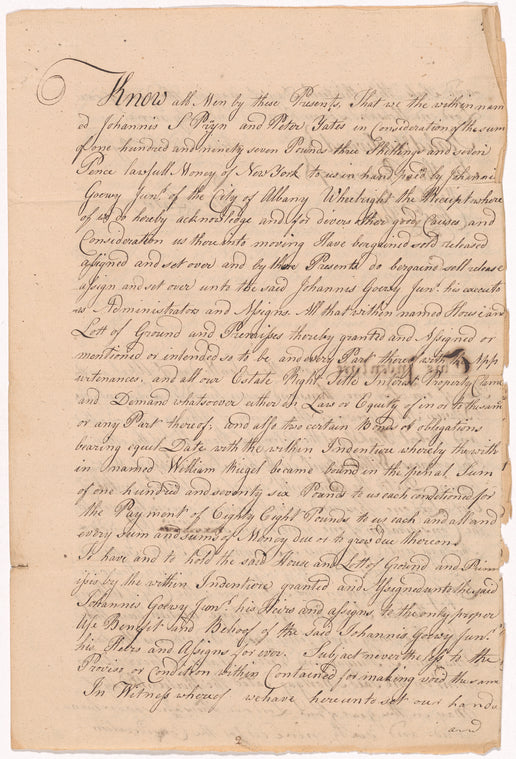 Know all Men by these Presents, That we the within nam
ed Johannis S Pruyn and Peter Yates in Consideration of the sum
of one hundred and ninety seven Pounds three Shillings and seven
Pence lawfull Money of New York to us in hand paid by Johannis
Goewy Junr. of the City of Albany Wheelright the Receipt where
of we do hereby acknowledge and for divers other good Causes and
Consideration us thereunto moving Have bargained sold released
assigned and set over and by these Presents do bargain sell release
assign and set over unto the said Johannis Goewy Junr. his executo
rs Administrators and Assigns All that within named House and
Lott of Ground and Premises thereby granted and Assigned or
mentioned or intended so to be and every Part thereof with the App
urtenances, and all our Estate Right Title Interest Property Claim
and Demand whatsoever either in Law or Equity of in or to the same
or any Part thereof, and also two certain Bonds or obligations
bearing equel Date with the within Indenture whereby the with
in named William became bound in the penal Sum
of one hundred and seventy six Pounds to us each conditioned for
the Payment of Eighty Eight Pounds to us each and all and
every Sum and Sums of Money due or to grow due thereon
To have and to hold the said House and Lott of Ground and Prem
ises by the within Indenture granted and Assigned unto the said
Johannis Goewy Junr. his Heirs and assigns, to the only proper
Use Benefit and Behoof of the said Johannis Goewy Junr.
his Heirs and Assigns for ever. Subject nevertheless to the
Proviso or Condition within Contained for making void the same
In Witness whereof we have hereunto set our hands
and
2